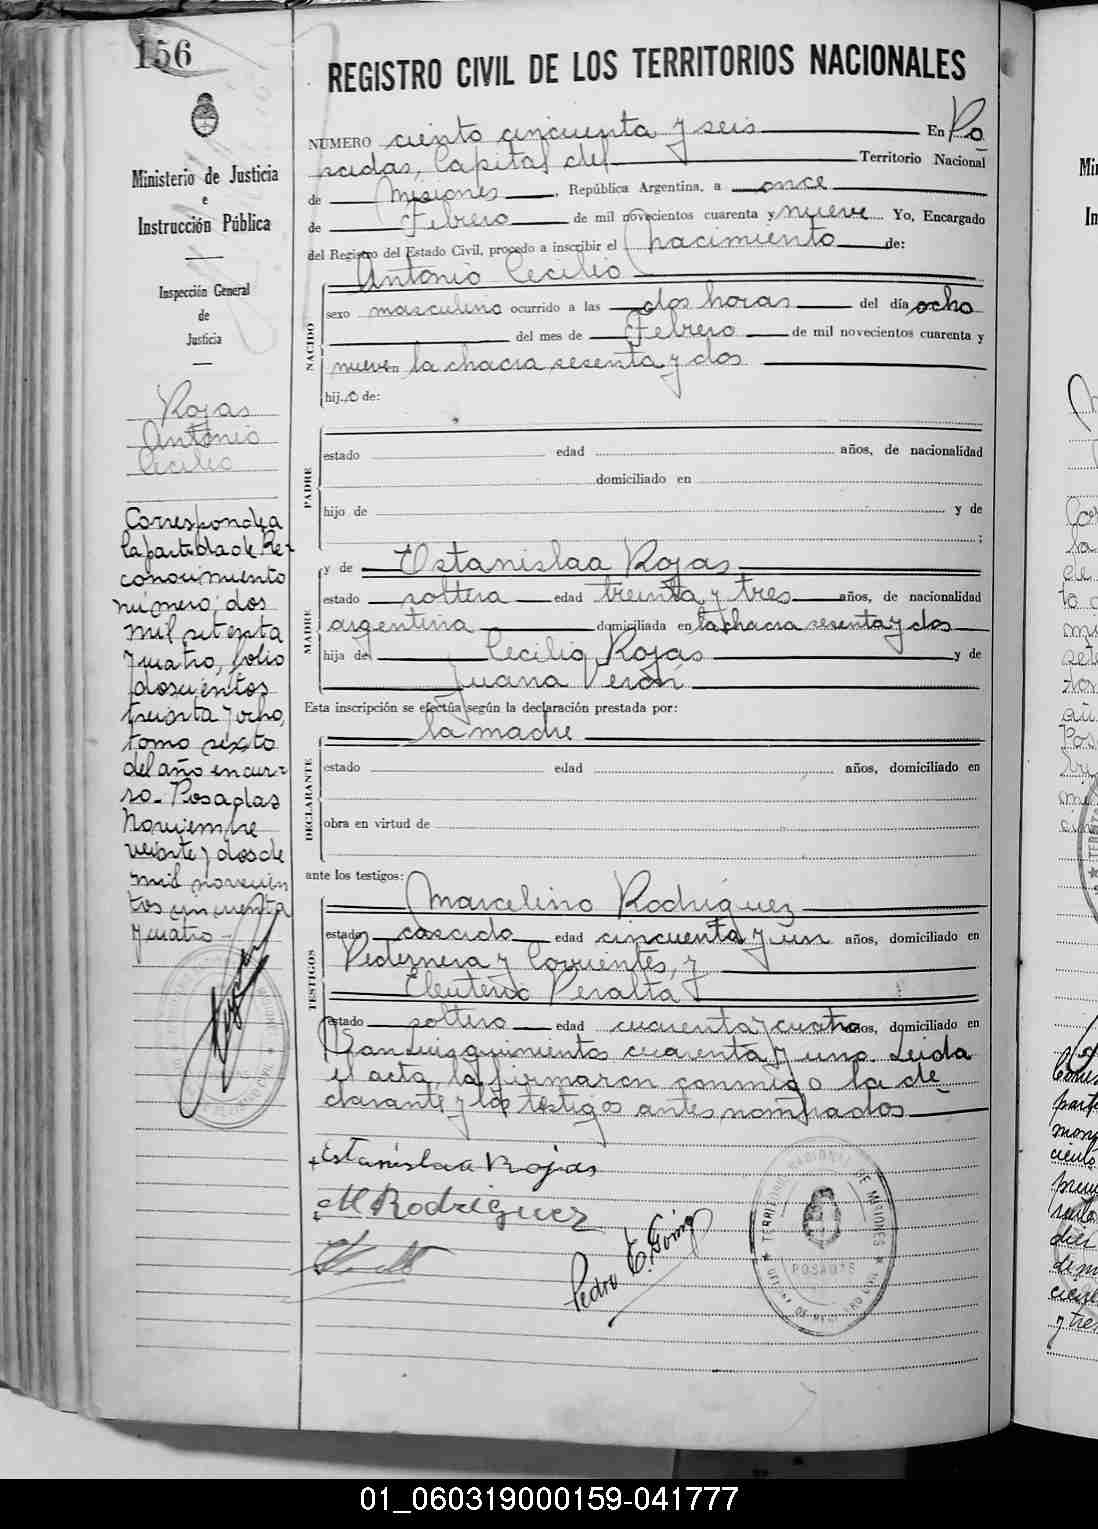 156
Ministerio de Justicia
e
Instrucción Pública
Inspección General
de
Justicia
Rojas
Antonio
Cecilio
Corresponde a
la partida de Re-
conocimiento
número, dos
mil setenta
y cuatro, folio
doscientos
treinta y ocho,
tomo sexto
del año en cur-
so. Posadas
Noviembre
veinte y dos de
mil novecien
tos cincuenta
y cuatro
REGISTRO CIVIL DE LOS TERRITORIOS NACIONALES
NÚMERO ciento cincuenta y seis En Po
sadas, Capital del Territorio Nacional
de Misiones, República Argentina, a once
de Febrero de mil novecientos cuarenta y nueve Yo, Encargado
del Registro del Estado Civil, procedo a inscribir el nacimiento de:
Antonio Cecilio
NACIDO
sexo masculino ocurrido a las dos horas del día ocho
del mes de Febrero de mil novecientos cuarenta y
nueve en la chacra sesenta y dos
hij o de:
PADRE
estado edad años, de nacionalidad
domiciliado en
hijo de y de
;
MADRE
y de Estanislaa Rojas
estado soltera edad treinta y tres años, de nacionalidad
argentina domiciliada en la chacra sesenta y dos
hija de Cecilio Rojas y de
Juana Verón
Esta inscripción se efectúa según la declaración prestada por:
la madre
DECLARANTE
estado edad años, domiciliado en
obra en virtud de
ante los testigos:
TESTIGOS
Marcelino Rodriguez
estado casado edad cincuenta y un años, domiciliado en
Pedernera y Corrientes, y
Eleuterio Peralta
estado soltero edad cuarenta y cuatro años, domiciliado en
San Luis quinientos cuarenta y uno. Leida
el acta, la firmaron conmigo la de
clarante y los testigos antes nombrados
Estanislaa Rojas
M Rodriguez
Pedro E. Going
TERRITORIO NACIONAL DE MISIONES
POSADAS
OFICINA DE REGISTRO CIVIL
01_060319000159-041777